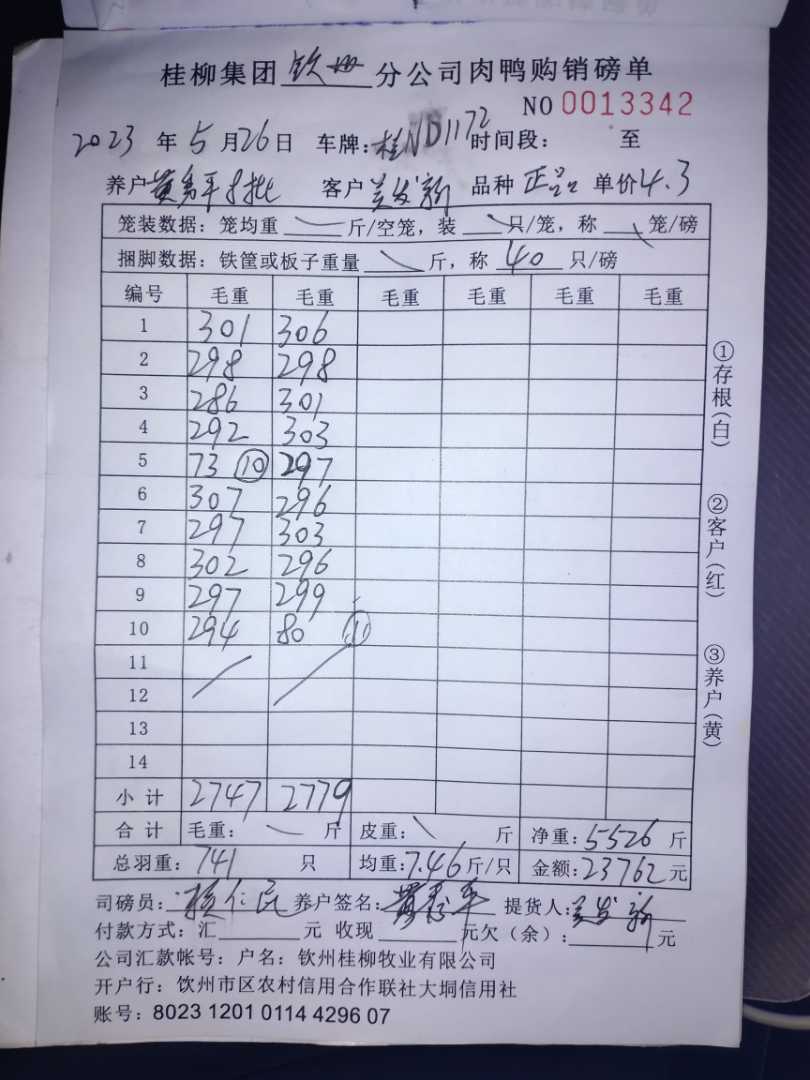 桂柳集团 钦州 分公司肉鸭购销磅单
NO 0013342
2023 年 5 月 26 日 车牌: 桂ND1172 时间段: 至
养户 黄 平 批 客户 发新 品种 正品 单价 4.3
笼装数据: 笼均重 斤/空笼, 装 只/笼, 称 笼/磅
捆脚数据: 铁筐或板子重量 斤, 称 40 只/磅
编号 毛重 毛重 毛重 毛重 毛重 毛重
1 301 306
2 298 298
3 286 301
4 292 303
5 73 ⑩ 297
6 307 296
7 297 303
8 302 296
9 297 299
10 294 80 ⑪
11
12
13
14
小计 2747 2779
合计 毛重: 斤 皮重: 斤 净重: 5526 斤
总羽重: 741 只 均重: 7.46 斤/只 金额: 23762 元
司磅员: 仁民 养户签名: 黄 平 提货人: 发新
付款方式: 汇 元 收现 元欠(余): 元
公司汇款帐号: 户名: 钦州桂柳牧业有限公司
开户行: 饮州市区农村信用合作联社大垌信用社
账号: 8023 1201 0114 4296 07
①存根(白)
②客户(红)
③养户(黄)